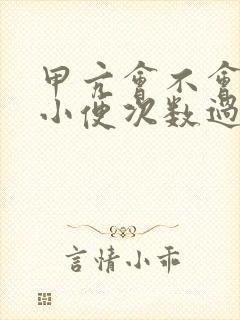 甲亢會不會
小便次数過
言情小乖